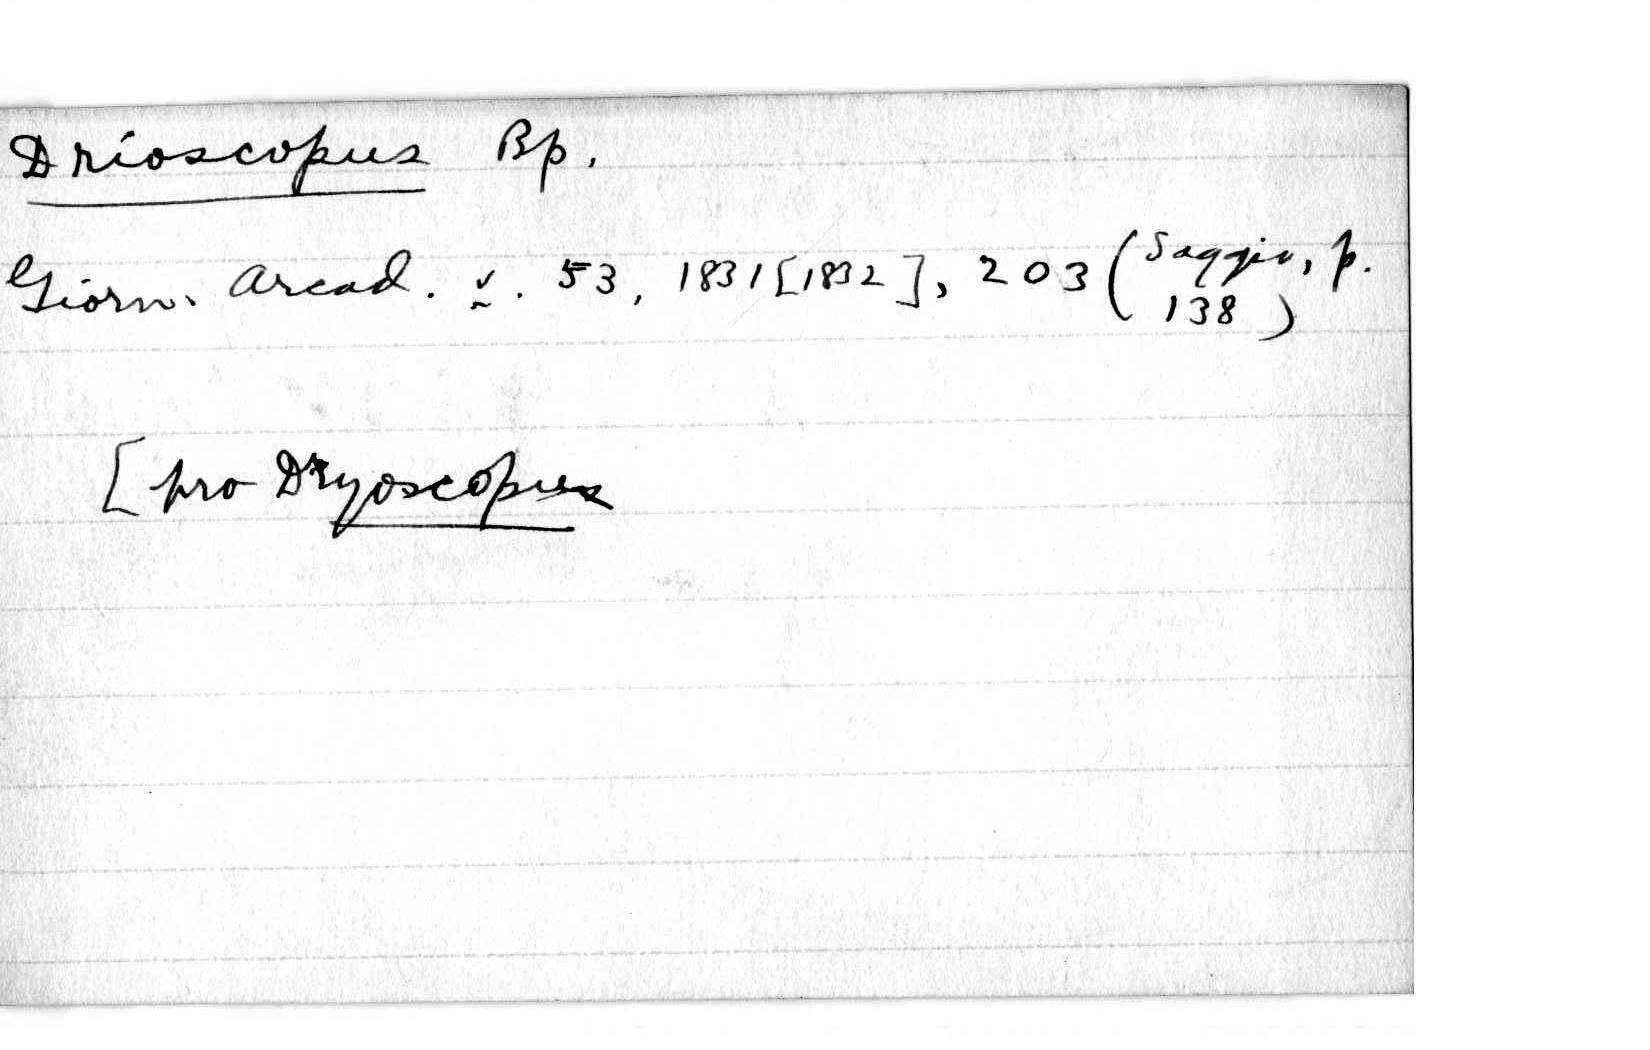 Drioscopus Bp.
Giorn. Arcad. v. 53, 1831[1832], 203 (Saggio, p. 138)
[pro Dryoscopus